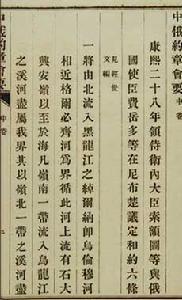 中俄約章會要
康熙二十八年領侍衛內大臣索額圖等與俄
國使臣費岳多等在尼布楚議定和約六條
見經世
文編
一將由北流入黑龍江之綽爾納卽烏倫穆河
相近格爾必齊河爲界循此河上流有石大
興安嶺以至於海凡嶺南一帶流入烏龍江
之溪河盡屬我界其以嶺北一帶之溪河盡
俄約章會要 中卷